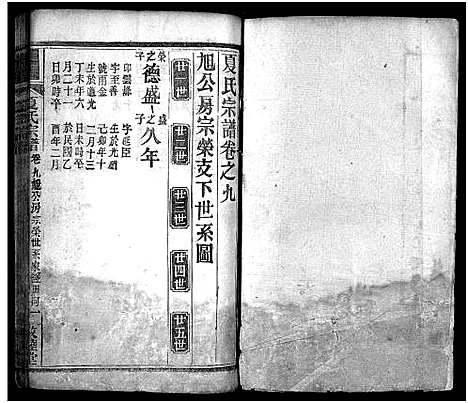 夏氏宗譜卷之九
旭公房宗榮支下世系圖
廿一世
廿二世
廿三世
廿四世
廿五世
榮之子
德盛
盛之子
久年
印雲錦
字至善
號雨金
生於道光
丁未年六
月二十一
日卯時卒
於民國乙
酉年二月
字配臣
生於光緒
己卯年十
二月十三
日未時
夏氏宗譜
卷九旭公房宗榮世系
一
敦睦堂